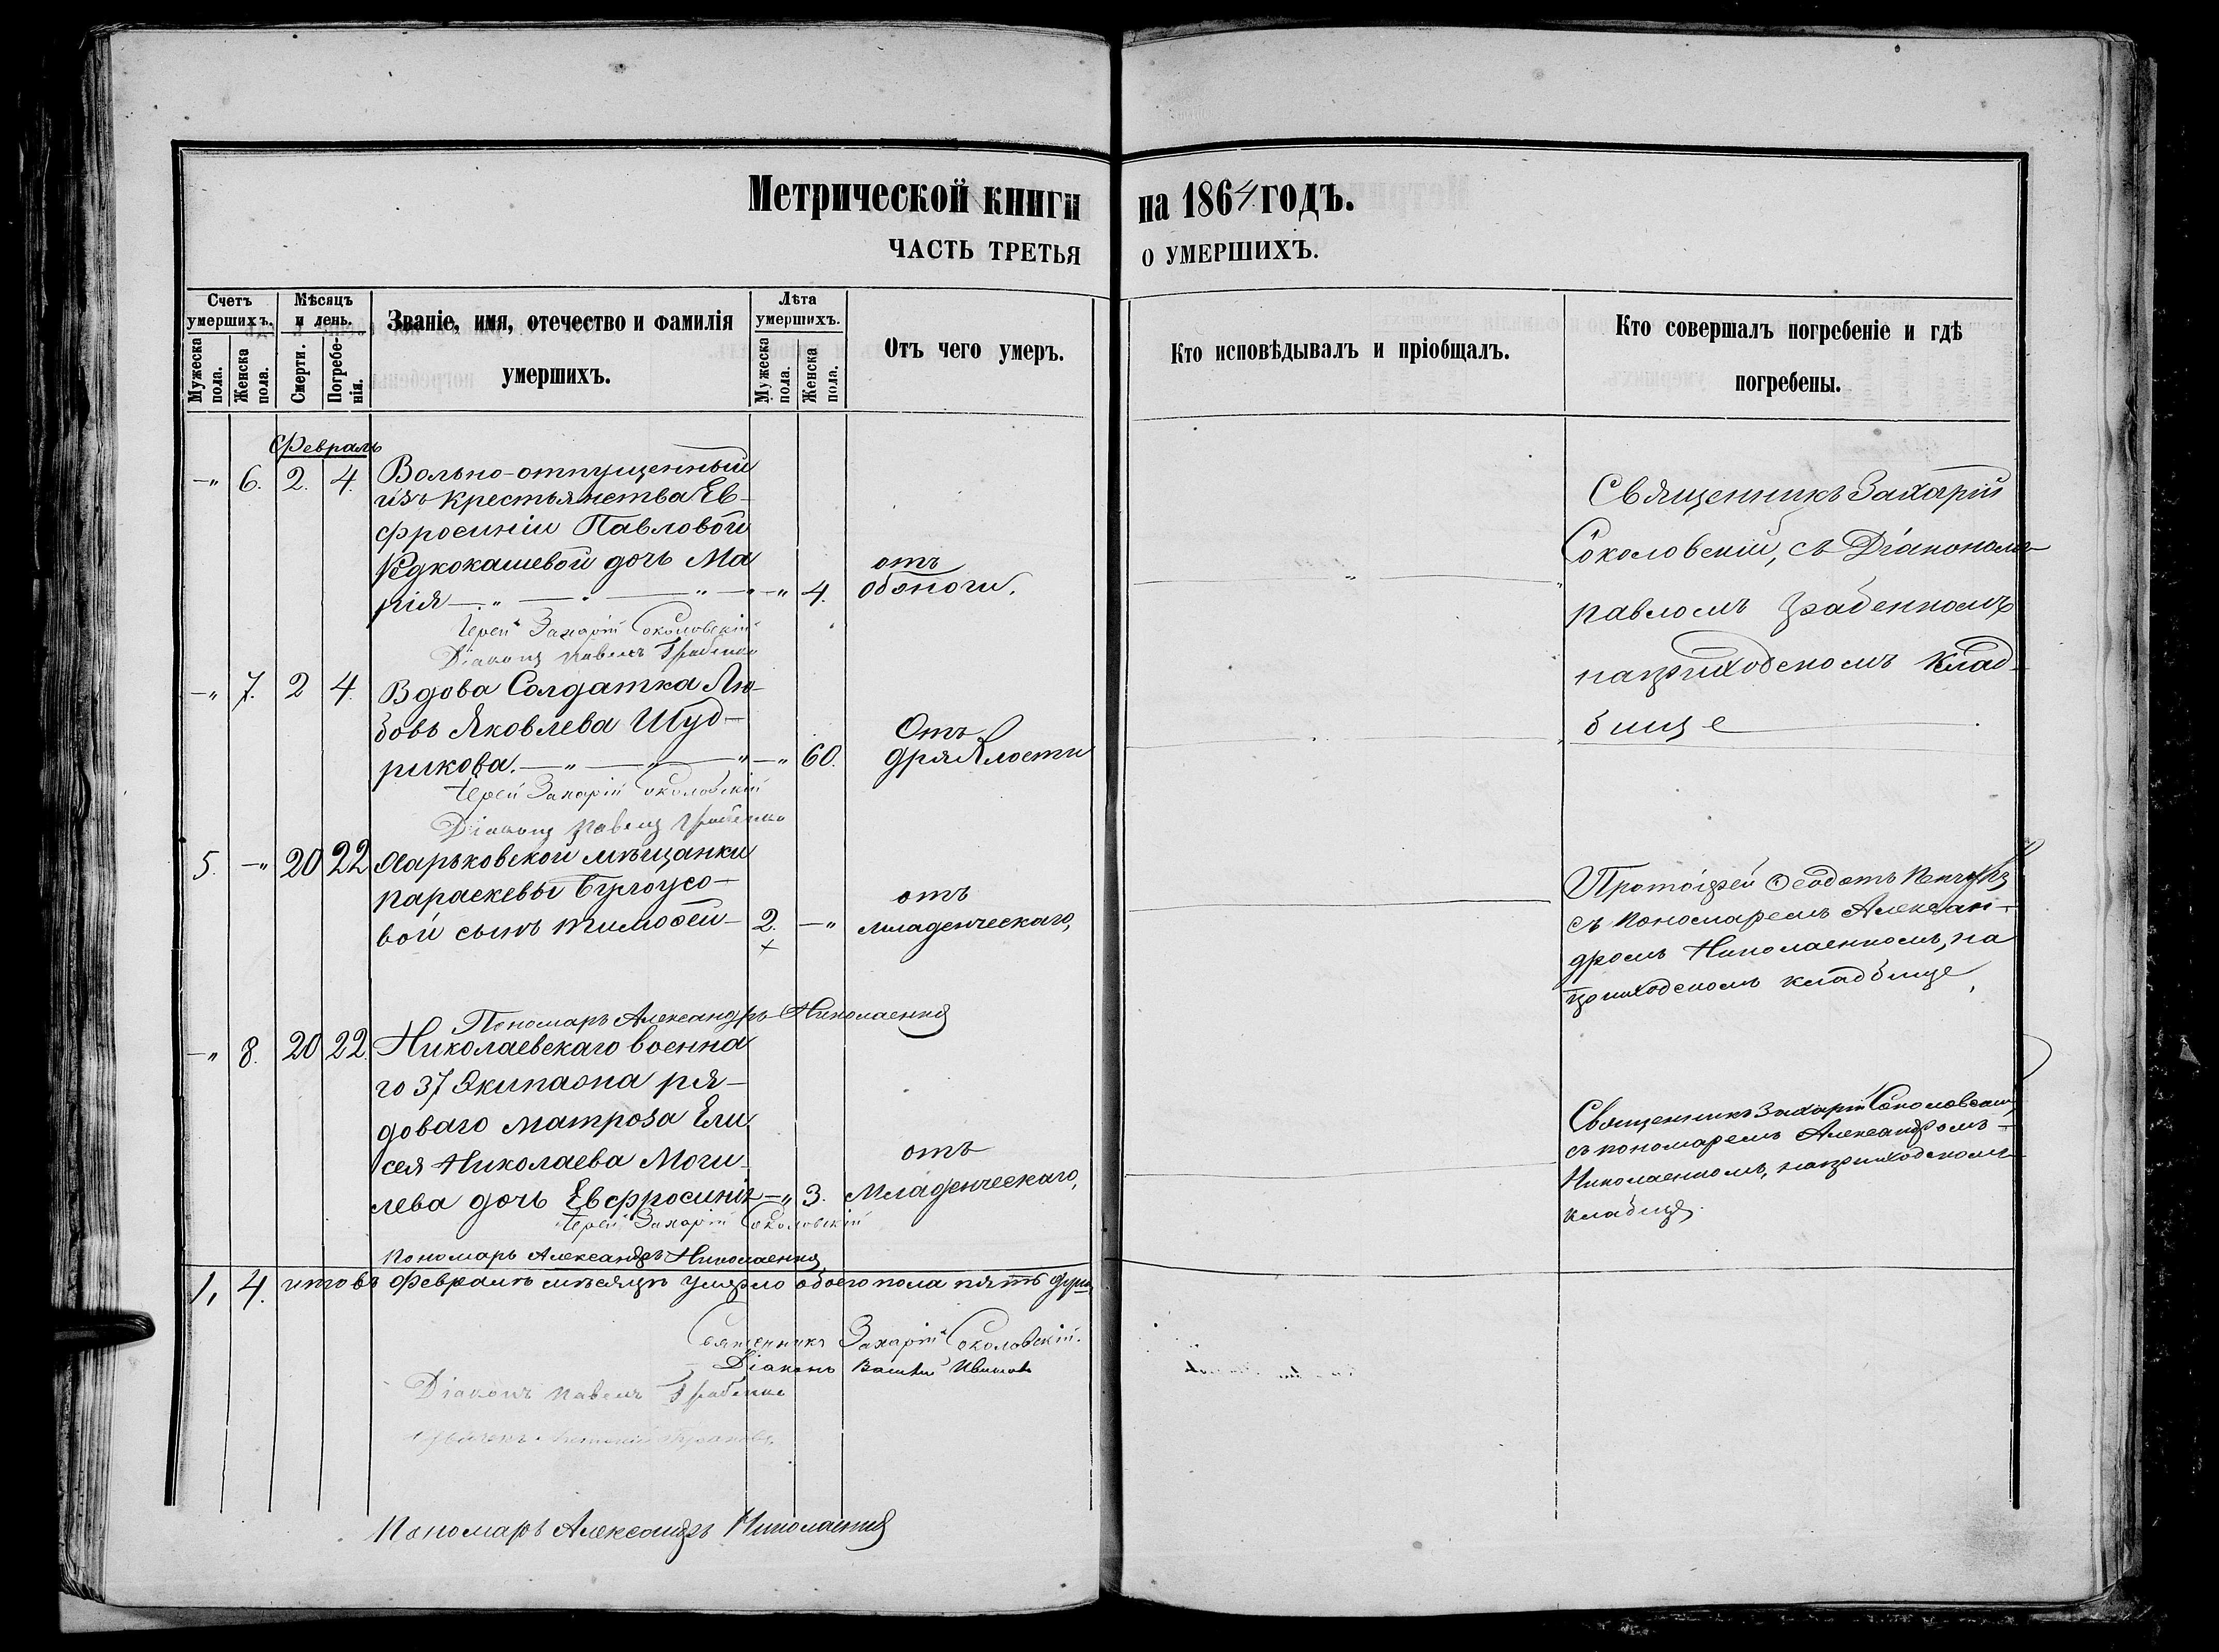 Метрической книги на 1864 годъ.
ЧАСТЬ ТРЕТЬЯ О УМЕРШИХЪ.
Счетъ умершихъ.
Мужеска пола.
Женска пола.
Мѣсяцъ и день.
Смерти.
Погребенія.
Званіе, имя, отечество и фамилія
умершихъ.
Лѣта умершихъ.
Мужеска пола.
Женска пола.
Отъ чего умеръ.
Кто исповѣдывалъ и пріобщалъ.
Кто совершалъ погребеніе и гдѣ
погребены.
Февраль
-" 6. 2. 4. Вольно-отпущенный
изъ крестьянства Ев-
фросиніи Павловой
дочь Ма
рія -"- 4.
отъ
Іерей Захарій Соколовскій
Діаконъ Павелъ Грабенко
Священникъ Захарій
Соколовскій, съ Діакономъ
Павломъ Грабенкомъ
наприходскомъ клад-
бище
-" 7. 2 4. Вдова Солдатка Лю-
бовь Яковлева Шуд-
рикова. -"- 60.
Отъ
дряхлости
Іерей Захарій Соколовскій
Діаконъ Павелъ Грабенко
5. -" 20 22 Харьковской мѣщанки
Параскевы
вой сынъ Тимофей- 2. -"
+
отъ
младенческаго,
Пономарь Александръ Николаенко
Протоіерей Феодотъ
съ Пономаремъ Алексан-
дромъ Николаенкомъ, на
приходскомъ кладбище,
-" 8. 20 22. Николаевскаго военна
го 37 Экипажа ря-
доваго матроза Ели
сея Николаева Моги-
лева дочь Евфросинія -" 3.
отъ
Младенческаго,
Іерей Захарій Соколовскій
Пономарь Александръ Николаенко
Священникъ Захарій Соколовскій,
съ пономаремъ Александромъ
Николаенкомъ, наприходскомъ
кладбище.
1, 4. итовъ Февралѣ мѣсяцѣ умерло обоего пола пять душъ
Священникъ Захарій Соколовскій.
Діаконъ Василій
Діаконъ Павелъ Грабенко
Пономарь Александръ Николаенко